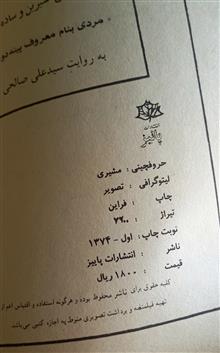 شیرین و ساده
مردی بنام معروف پینه‌دوز
به روایت سیدعلی صالحی
انتشارات
پاییز
حروفچینی: مشیری
لیتوگرافی: تصویر
چاپ: فراین
تیراژ: ۲۲۰۰
نوبت چاپ: اول - ۱۳۷۴
ناشر: انتشارات پاییز
قیمت: ۱۸۰۰ ریال
کلیه حقوق برای ناشر محفوظ بوده و هرگونه استفاده و اقتباس اعم از
تهیه فیلمنامه و برداشت تصویری منوط به اجازه کتبی می‌باشد